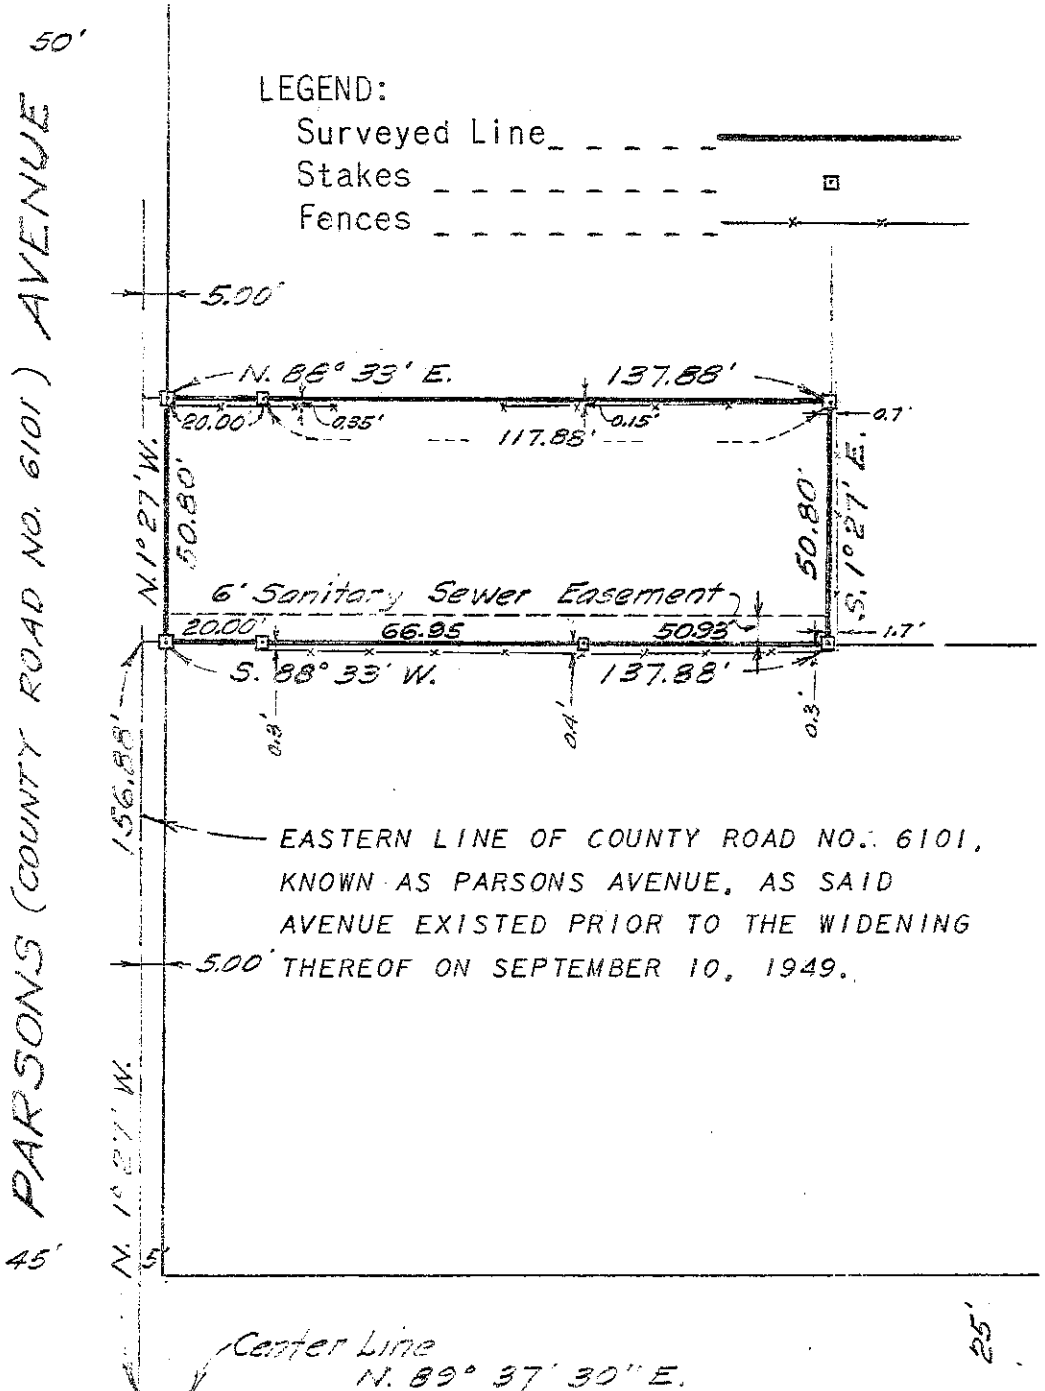 50'
PARSONS (COUNTY ROAD NO. 6101) AVENUE
LEGEND:
Surveyed Line
Stakes
Fences
5.00'
N. 88° 33' E.
137.88'
20.00'
0.35'
0.15'
0.7'
117.88'
N. 1° 27' W.
50.80'
50.80'
S. 1° 27' E.
6' Sanitary Sewer Easement
20.00'
66.95
50.93'
1.7'
S. 88° 33' W.
137.88'
0.4'
0.3'
156.88'
EASTERN LINE OF COUNTY ROAD NO. 6101,
KNOWN AS PARSONS AVENUE, AS SAID
AVENUE EXISTED PRIOR TO THE WIDENING
THEREOF ON SEPTEMBER 10, 1949.
5.00'
N. 1° 27' W.
45'
5'
25'
Center Line
N. 89° 37' 30" E.